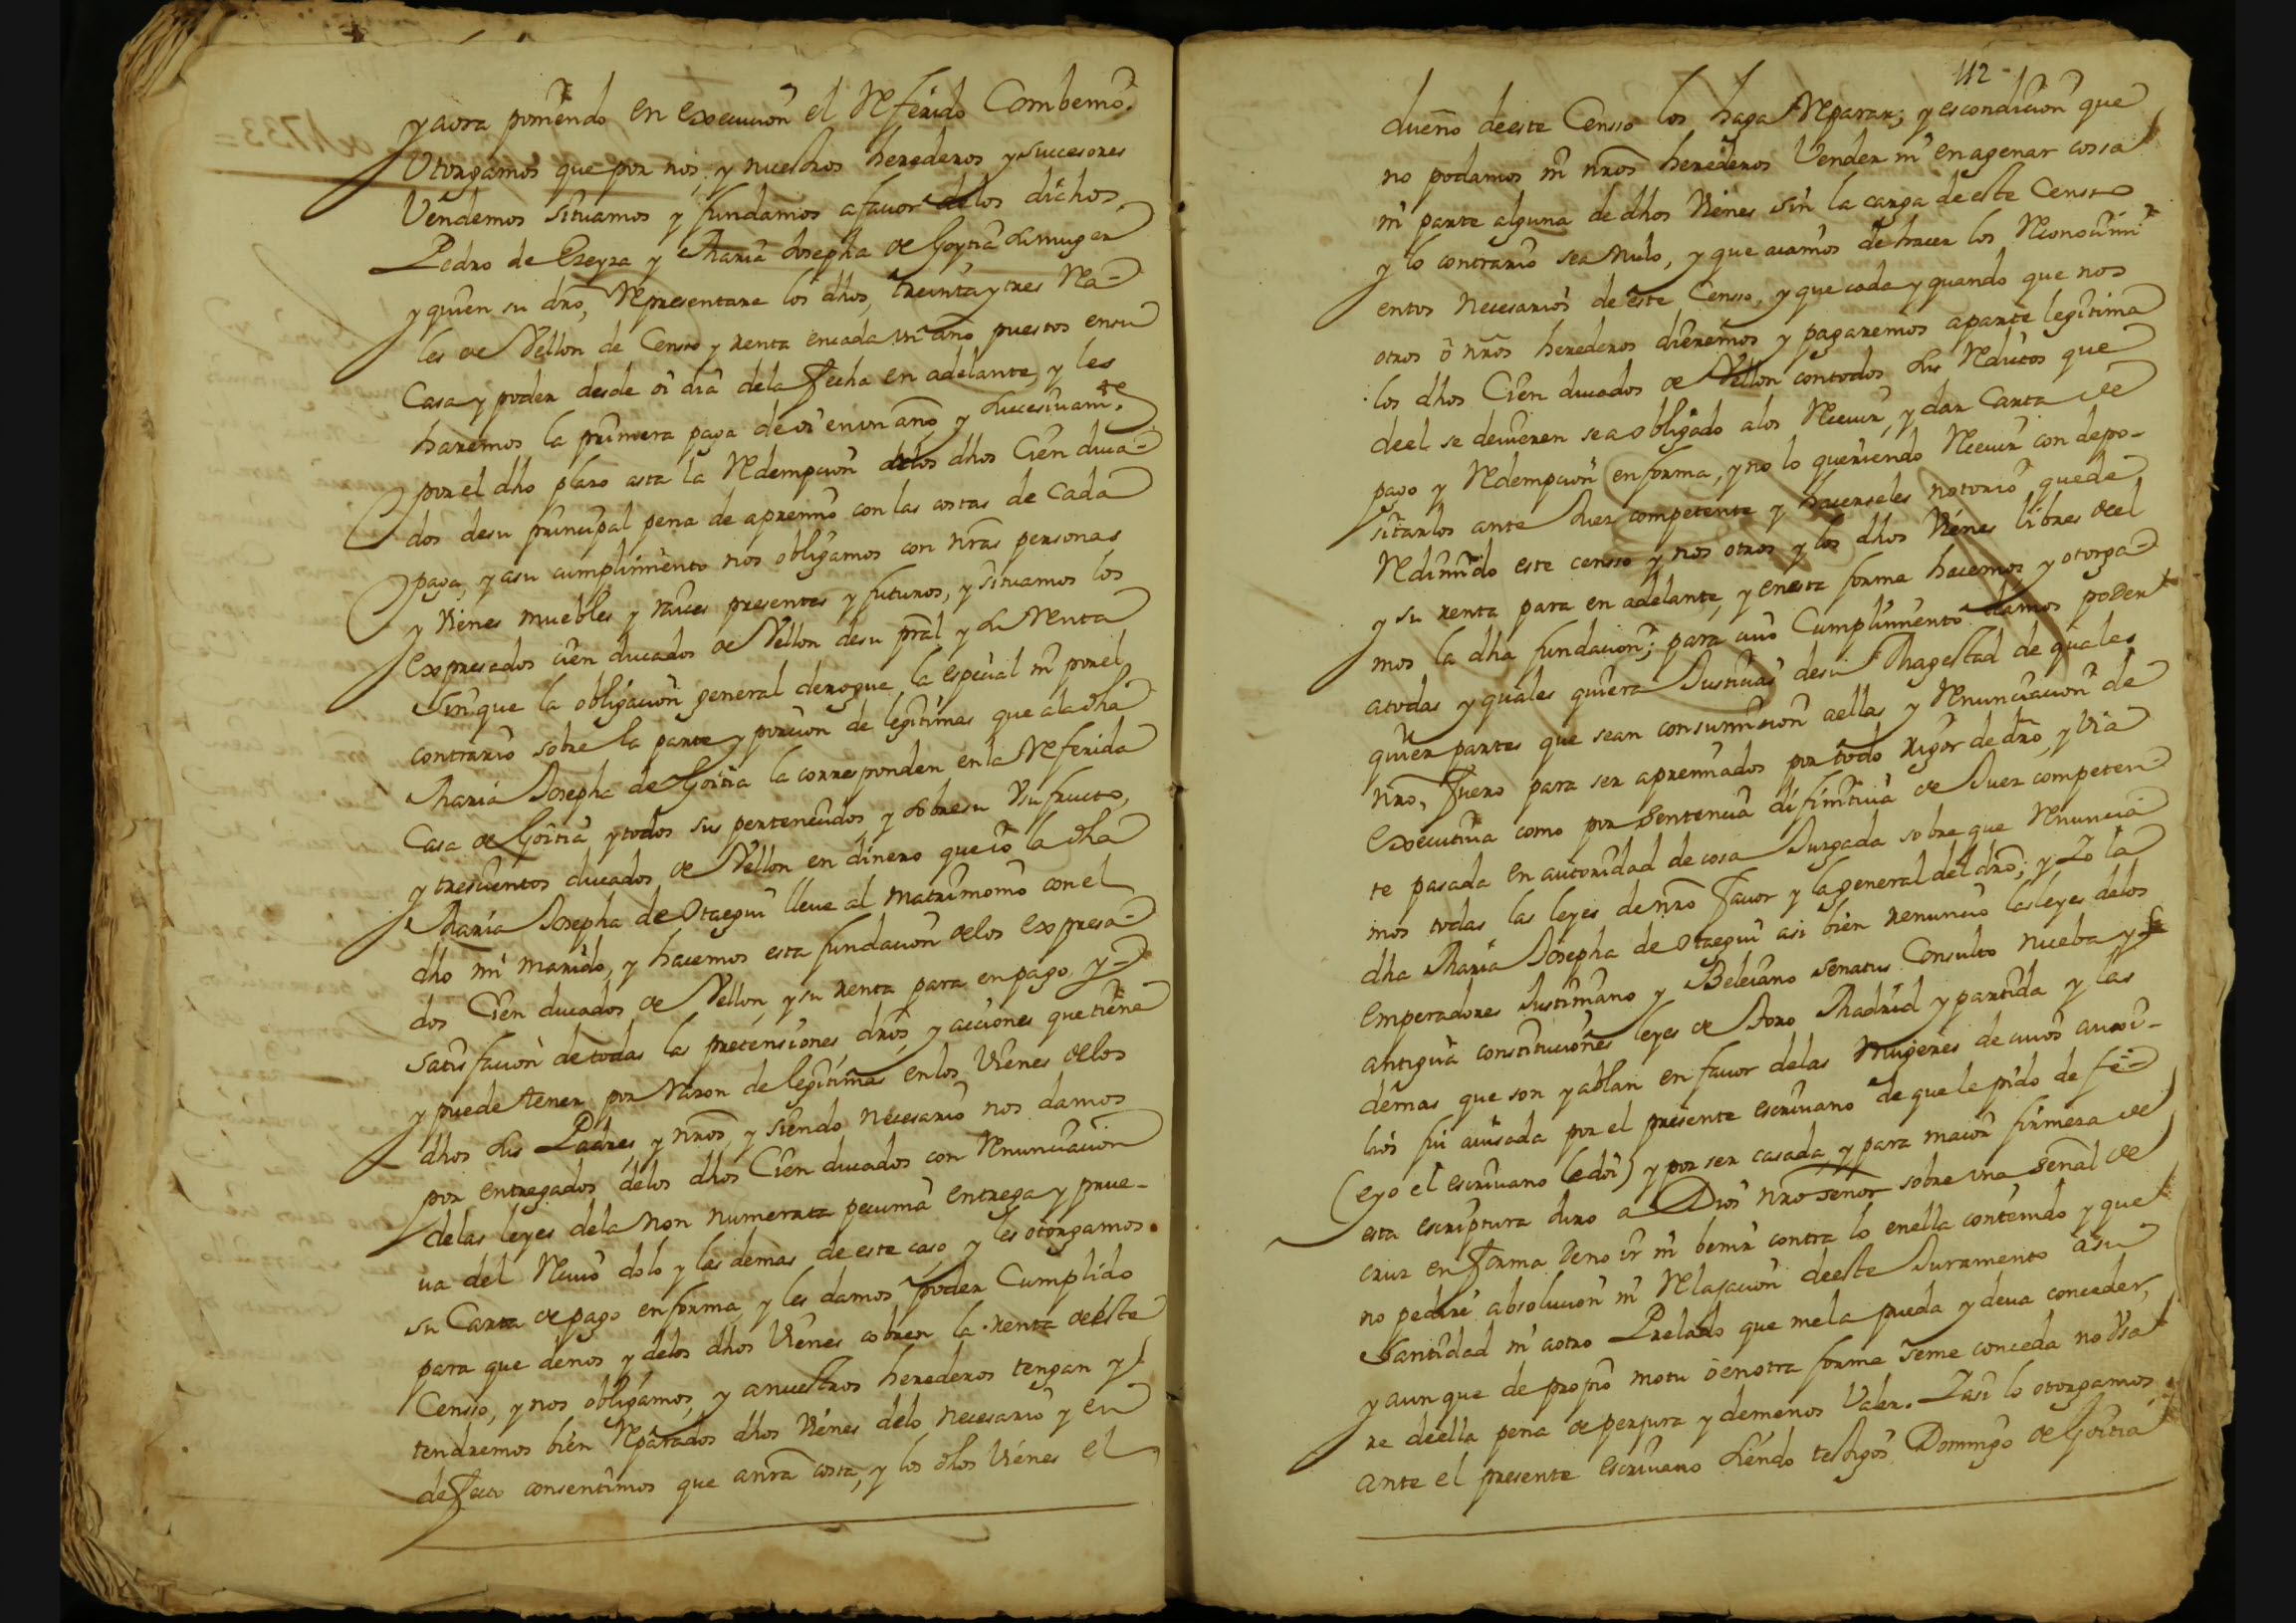 y aora poniendo en execucion el Referido Combenio.
Otorgamos que por nos, y nuestros herederos y succesores
Vendemos situamos y fundamos a fauor delos dichos
Pedro de Ereyza y Maria Josepha de Goytia su muger
y quien su dro, Representare los dhos, treinta y tres Rea-
les de Vellon de Censso y renta encada un año puestos ensu
Casa y poder desde oi dia dela fecha en adelante, y les
haremos la primera paga de oi en vn año y sucesivamte.
por el dho plazo asta la Redempcion delos dhos Cien duca-
dos desu principal pena de apremio con las costas de Cada
paga, y asu cumplimiento nos obligamos con nras personas
y Vienes muebles y raices presentes y futuros, y situamos los
expresados cien ducados de Vellon desu pral y su Renta
sin que la obligacion general derogue la especial ni por el
contrario sobre la parte y porcion de legitimas que ala dha
Maria Josepha de Goitia la corresponden en la Referida
Casa de Goitia y todos sus pertenecidos y sobresu Vsufructo,
y trescientos ducados de Vellon en dinero que io la dha
Maria Josepha de Otaegui lleue al matrimonio con el
dho mi marido, y hacemos esta fundacion delos expresa-
dos Cien ducados de Vellon, y su renta para en pago y
satisfacion de todas las pretensiones dros, y acciones que tiene
y puede tener por Razon de legitimas en los Vienes delos
dhos sus Padres, y nros, y siendo necesario nos damos
por entregados delos dhos Cien ducados con Renunciacion
delas leyes dela non numerata pecunia entrega y prue-
ua del Reciuo dolo y las demas de este caso, y les otorgamos
su Carta de pago en forma, y les damos poder Cumplido
para que denos y delos dhos Vienes cobren la renta deeste
Censso, y nos obligamos, y a nuestros herederos tengan y
tendremos bien Reparados dhos Vienes delo necesario y en
defecto consentimos que anra costa, y los dhos Vienes el
112
dueño deeste Censso los haga Reparar; y es condicion que
no podamos ni nros herederos Vender ni enagenar cossa
ni parte alguna de dhos Vienes sin la carga de este Censso
y lo contrario sea nulo, y que aiamos de hacer los Reconocimi
entos necesarios de este Censso, y que cada y quando que nos
otros o nros herederos dieremos y pagaremos aparte legitima
los dhos Cien ducados de Vellon contodos sus Reditos que
deel se deuieren sea obligado alos Reciuir, y dar Carta de
pago y Redempcion en forma, y no lo queriendo Reciuir con depo-
sitarlos ante Juez competente y hacerseles notorio quede
Redimido este censso y nos otros y los dhos Vienes libres deel
y su renta para en adelante, y enesta forma hacemos y otorga-
mos la dha fundacion; para cuio Cumplimiento damos poder
atodas y quales quiera Justicias desu Magestad de quales
quier partes que sean consumision aellas y Renunciacion de
nro, fuero para ser apremiados por todo rigor de dro, y Via
executiua como por sentencia difinitiua de Juez competen-
te pasada en autoridad de cosa Juzgada sobre que Renuncia
mos todas las leyes de nro fauor y la general del dro; y Yo la
dha Maria Josepha de Otaegui asi bien renuncio las leyes delos
emperadores Justiniano y Beleiano senatus Consulto nueba y
antigua constituciones leyes de Toro Madrid y partida y las
demas que son y ablan en fauor delas mugeres de cuios auxi-
lios fui auisada por el presente escriuano de que le pido de fe
(eyo el escriuano le doi) y por ser casada y para maior firmeza de
esta escriptura Juro a Dios nro señor sobre vna señal de
cruz en forma deno ir ni benir contra lo enella contenido y que
no pedire absolucion ni Relajacion deeste Juramento asu
Santidad ni aotro Prelado que mela pueda y deua conceder,
y aun que de propio motu o en otra forma seme conceda no Vsa
re deella pena de perjura y demenos Valer. Y asi lo otorgamos
ante el presente escriuano siendo testigos Domingo de Goitia